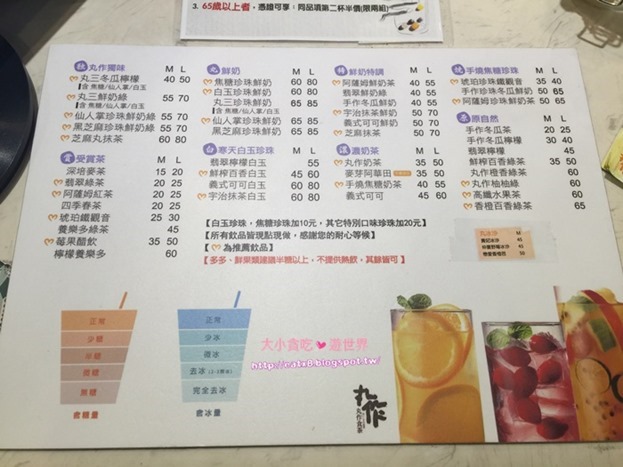 3. 65歲以上者，憑證可享：同品項第二杯半價(限兩組)
丸作獨味 M L
丸三冬瓜檸檬 40 50
【含 焦糖/仙人掌/白玉
丸三鮮奶綠 55 70
【含 焦糖/仙人掌/白玉
仙人掌珍珠鮮奶綠 55 70
黑芝麻珍珠鮮奶綠 55 70
芝麻丸抹茶 60 80
賞 受賞茶 M L
深培麥茶 15 20
翡翠綠茶 20 25
阿薩姆紅茶 20 25
四季春茶 20 25
琥珀鐵觀音 25 30
養樂多綠茶 45
莓果醋飲 35 50
檸檬養樂多 60
鮮奶 M L
焦糖珍珠鮮奶 60 80
白玉珍珠鮮奶 60 80
丸三珍珠鮮奶 65 85
【含 焦糖/仙人掌/白玉
仙人掌珍珠鮮奶 65 85
黑芝麻珍珠鮮奶 65 85
白 寒天白玉珍珠 M L
翡翠檸檬白玉 55
鮮榨百香白玉 45 60
義式可可白玉 60 80
宇治抹茶白玉 60 80
鮮 鮮奶特調 M L
阿薩姆鮮奶茶 40 55
翡翠鮮奶綠 40 55
手作冬瓜鮮奶 40 55
宇治抹茶鮮奶 50 70
義式可可鮮奶 50 70
芝麻抹茶 50 70
濃 濃奶茶 M L
丸作奶茶 35 50
麥芽阿華田 35 50
手燒焦糖奶茶 40 55
特別決明子抹茶 45
燒 手燒焦糖珍珠 M L
琥珀珍珠鐵觀音 35 40
手作珍珠冬瓜鮮奶 50 65
阿薩姆珍珠鮮奶茶 50 65
原 原自然 M L
手作冬瓜茶 20 25
手作冬瓜檸檬 30 40
翡翠檸檬 45
鮮榨百香綠茶 35 50
丸作橙香綠茶 65
丸作柚柚綠 60
高纖水果茶 60
香橙百香綠茶 65
【白玉珍珠，焦糖珍珠加10元，其它特別口味珍珠加20元】
【所有飲品皆現點現做，感謝您的耐心等候】
【 為推薦飲品】
【多多、鮮果類建議半糖以上，不提供熱飲，其餘皆可 】
丸冰沙 M
正常
少糖
半糖
微糖
無糖
含糖量
正常
少冰
微冰
去冰
完全去冰
含冰量
大小貪吃 遊世界
http://eatx8.blogspot.tw/
丸作
丸作食茶